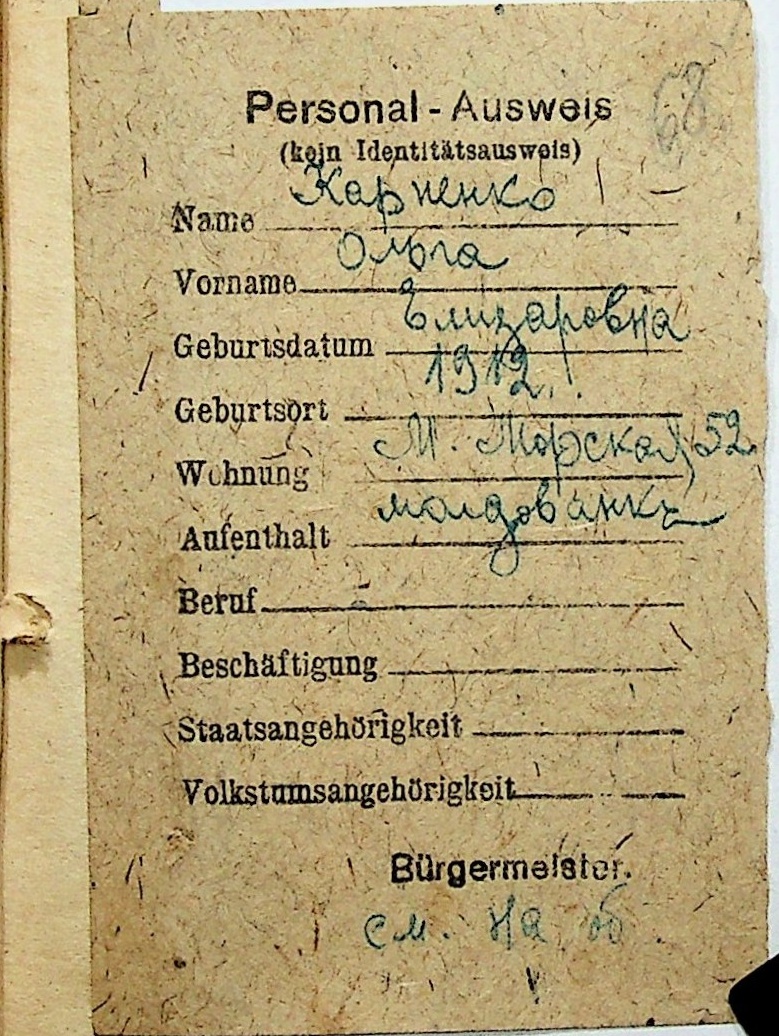 68
Personal - Ausweis
(kein Identitätsausweis)
Карпенко
Name
Ольга
Vorname
Елизаровна
Geburtsdatum
1912.
Geburtsort
М. Морская 52
Wohnung
молдованка
Aufenthalt
Beruf
Beschäftigung
Staatsangehörigkeit
Volkstumsangehörigkeit
Bürgermeister.
см. на об.